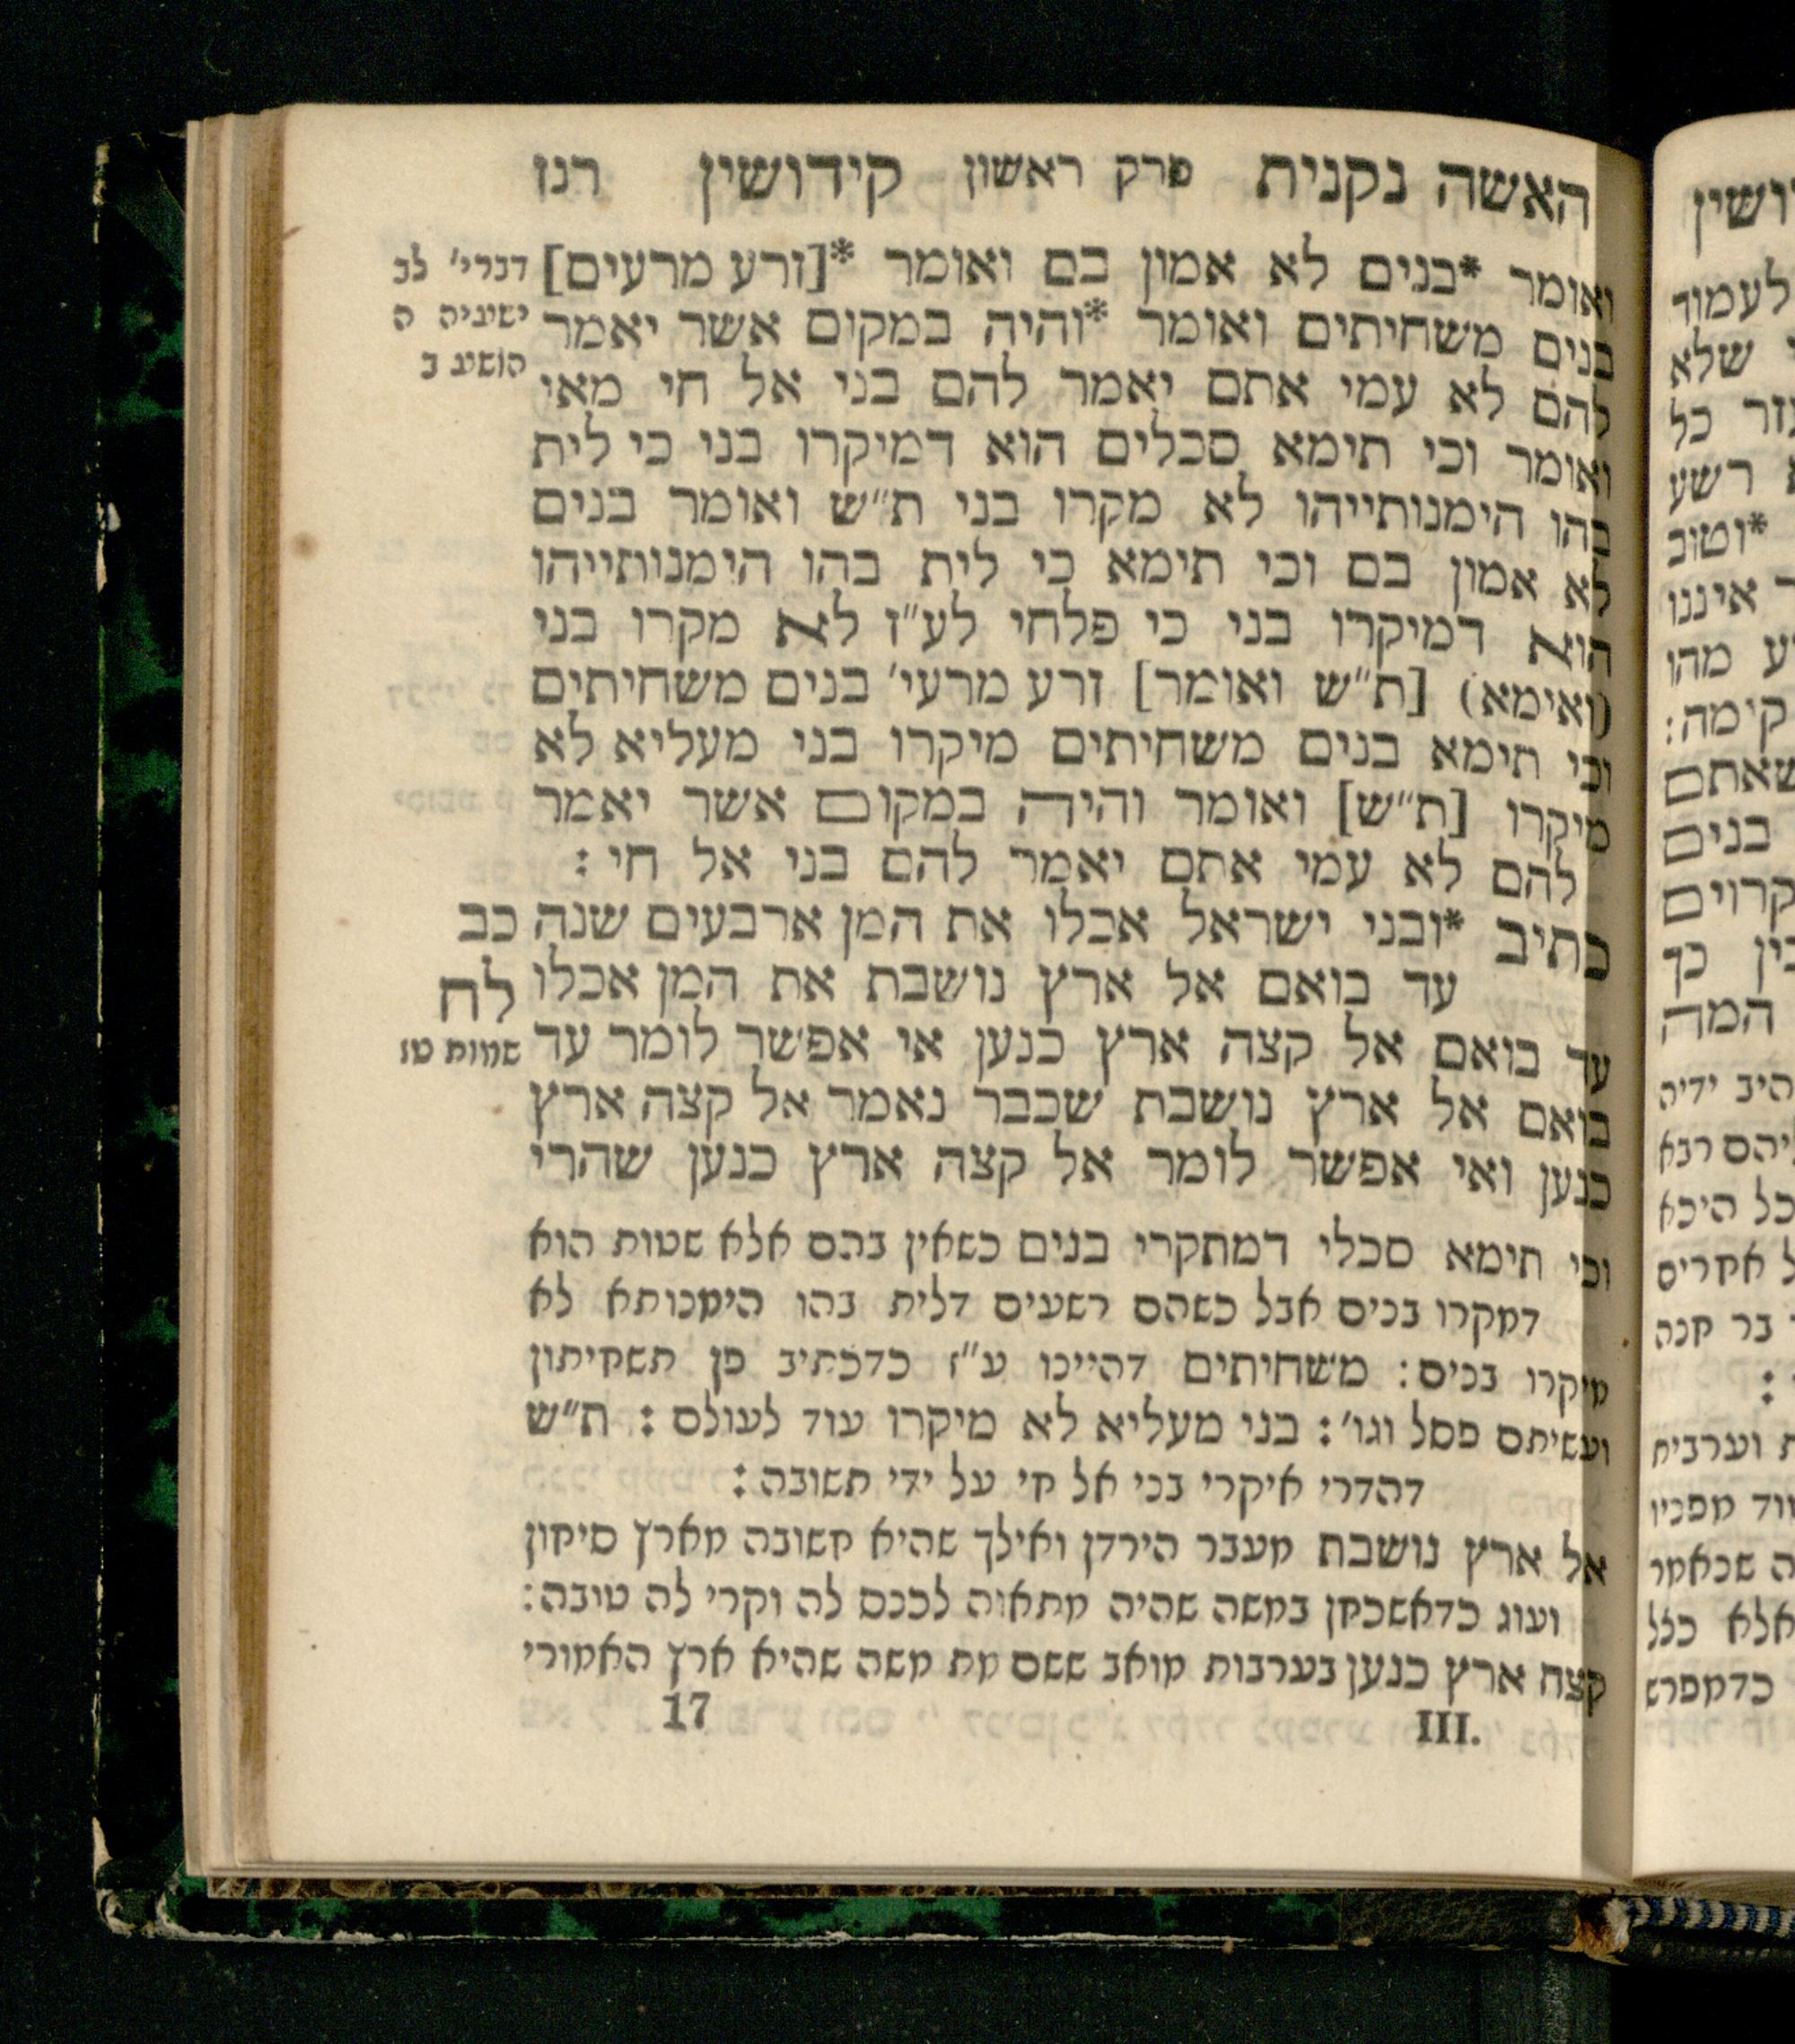 האשה נקנית פרק ראשון קידושין רנז
ואומר *בנים לא אמון בם ואומר *[זרע מרעים]
בנים משחיתים ואומר *והיה במקום אשר יאמר
להם לא עמי אתם יאמר להם בני אל חי מאי
ואומר וכי תימא סכלים הוא דמיקרו בני כי לית
בהו הימנותייהו לא מקרו בני ת״ש ואומר בנים
לא אמון בם וכי תימא כי לית בהו הימנותייהו
הוא דמיקרו בני כי פלחי לע״ז לא מקרו בני
(ואימא) [ת״ש ואומר] זרע מרעי׳ בנים משחיתים
וכי תימא בנים משחיתים מיקרו בני מעליא לא
מיקרו [ת״ש] ואומר והיה במקום אשר יאמר
להם לא עמי אתם יאמר להם בני אל חי:
כתיב *ובני ישראל אכלו את המן ארבעים שנה
עד בואם אל ארץ נושבת את המן אכלו
עד בואם אל קצה ארץ כנען אי אפשר לומר עד
בואם אל ארץ נושבת שכבר נאמר אל קצה ארץ
כנען ואי אפשר לומר אל קצה ארץ כנען שהרי
דברי׳ לב
ישעיה ה
הושע ב
כב
לח
שמות טז
וכי תימא סכלי דמתקרי בנים כשאין בהם אלא שטות הוא
דמקרו בנים אבל כשהם רשעים דלית בהו הימנותא לא
מיקרו בנים: משחיתים דהיינו ע״ז כדכתיב פן תשחיתון
ועשיתם פסל וגו׳: בני מעליא לא מיקרו עוד לעולם: ת״ש
דהדרי איקרי בני אל חי על ידי תשובה:
אל ארץ נושבת מעבר הירדן ואילך שהיא חשובה מארץ סיחון
ועוג כדאשכחן במשה שהיה מתאוה לכנס לה וקרי לה טובה:
קצה ארץ כנען בערבות מואב ששם מת משה שהיא ארץ האמורי
III. 17
ושין
לעמוד
שלא
כל
רשע
*וטוב
איננו
מהו
קימה:
שאתם
בנים
קרוים
כך
המה
ידיה
רבא
היכא
אחריס
בר חנה
:
וערבית
מפניו
שנאמר
אלא ככל
כדמפרש